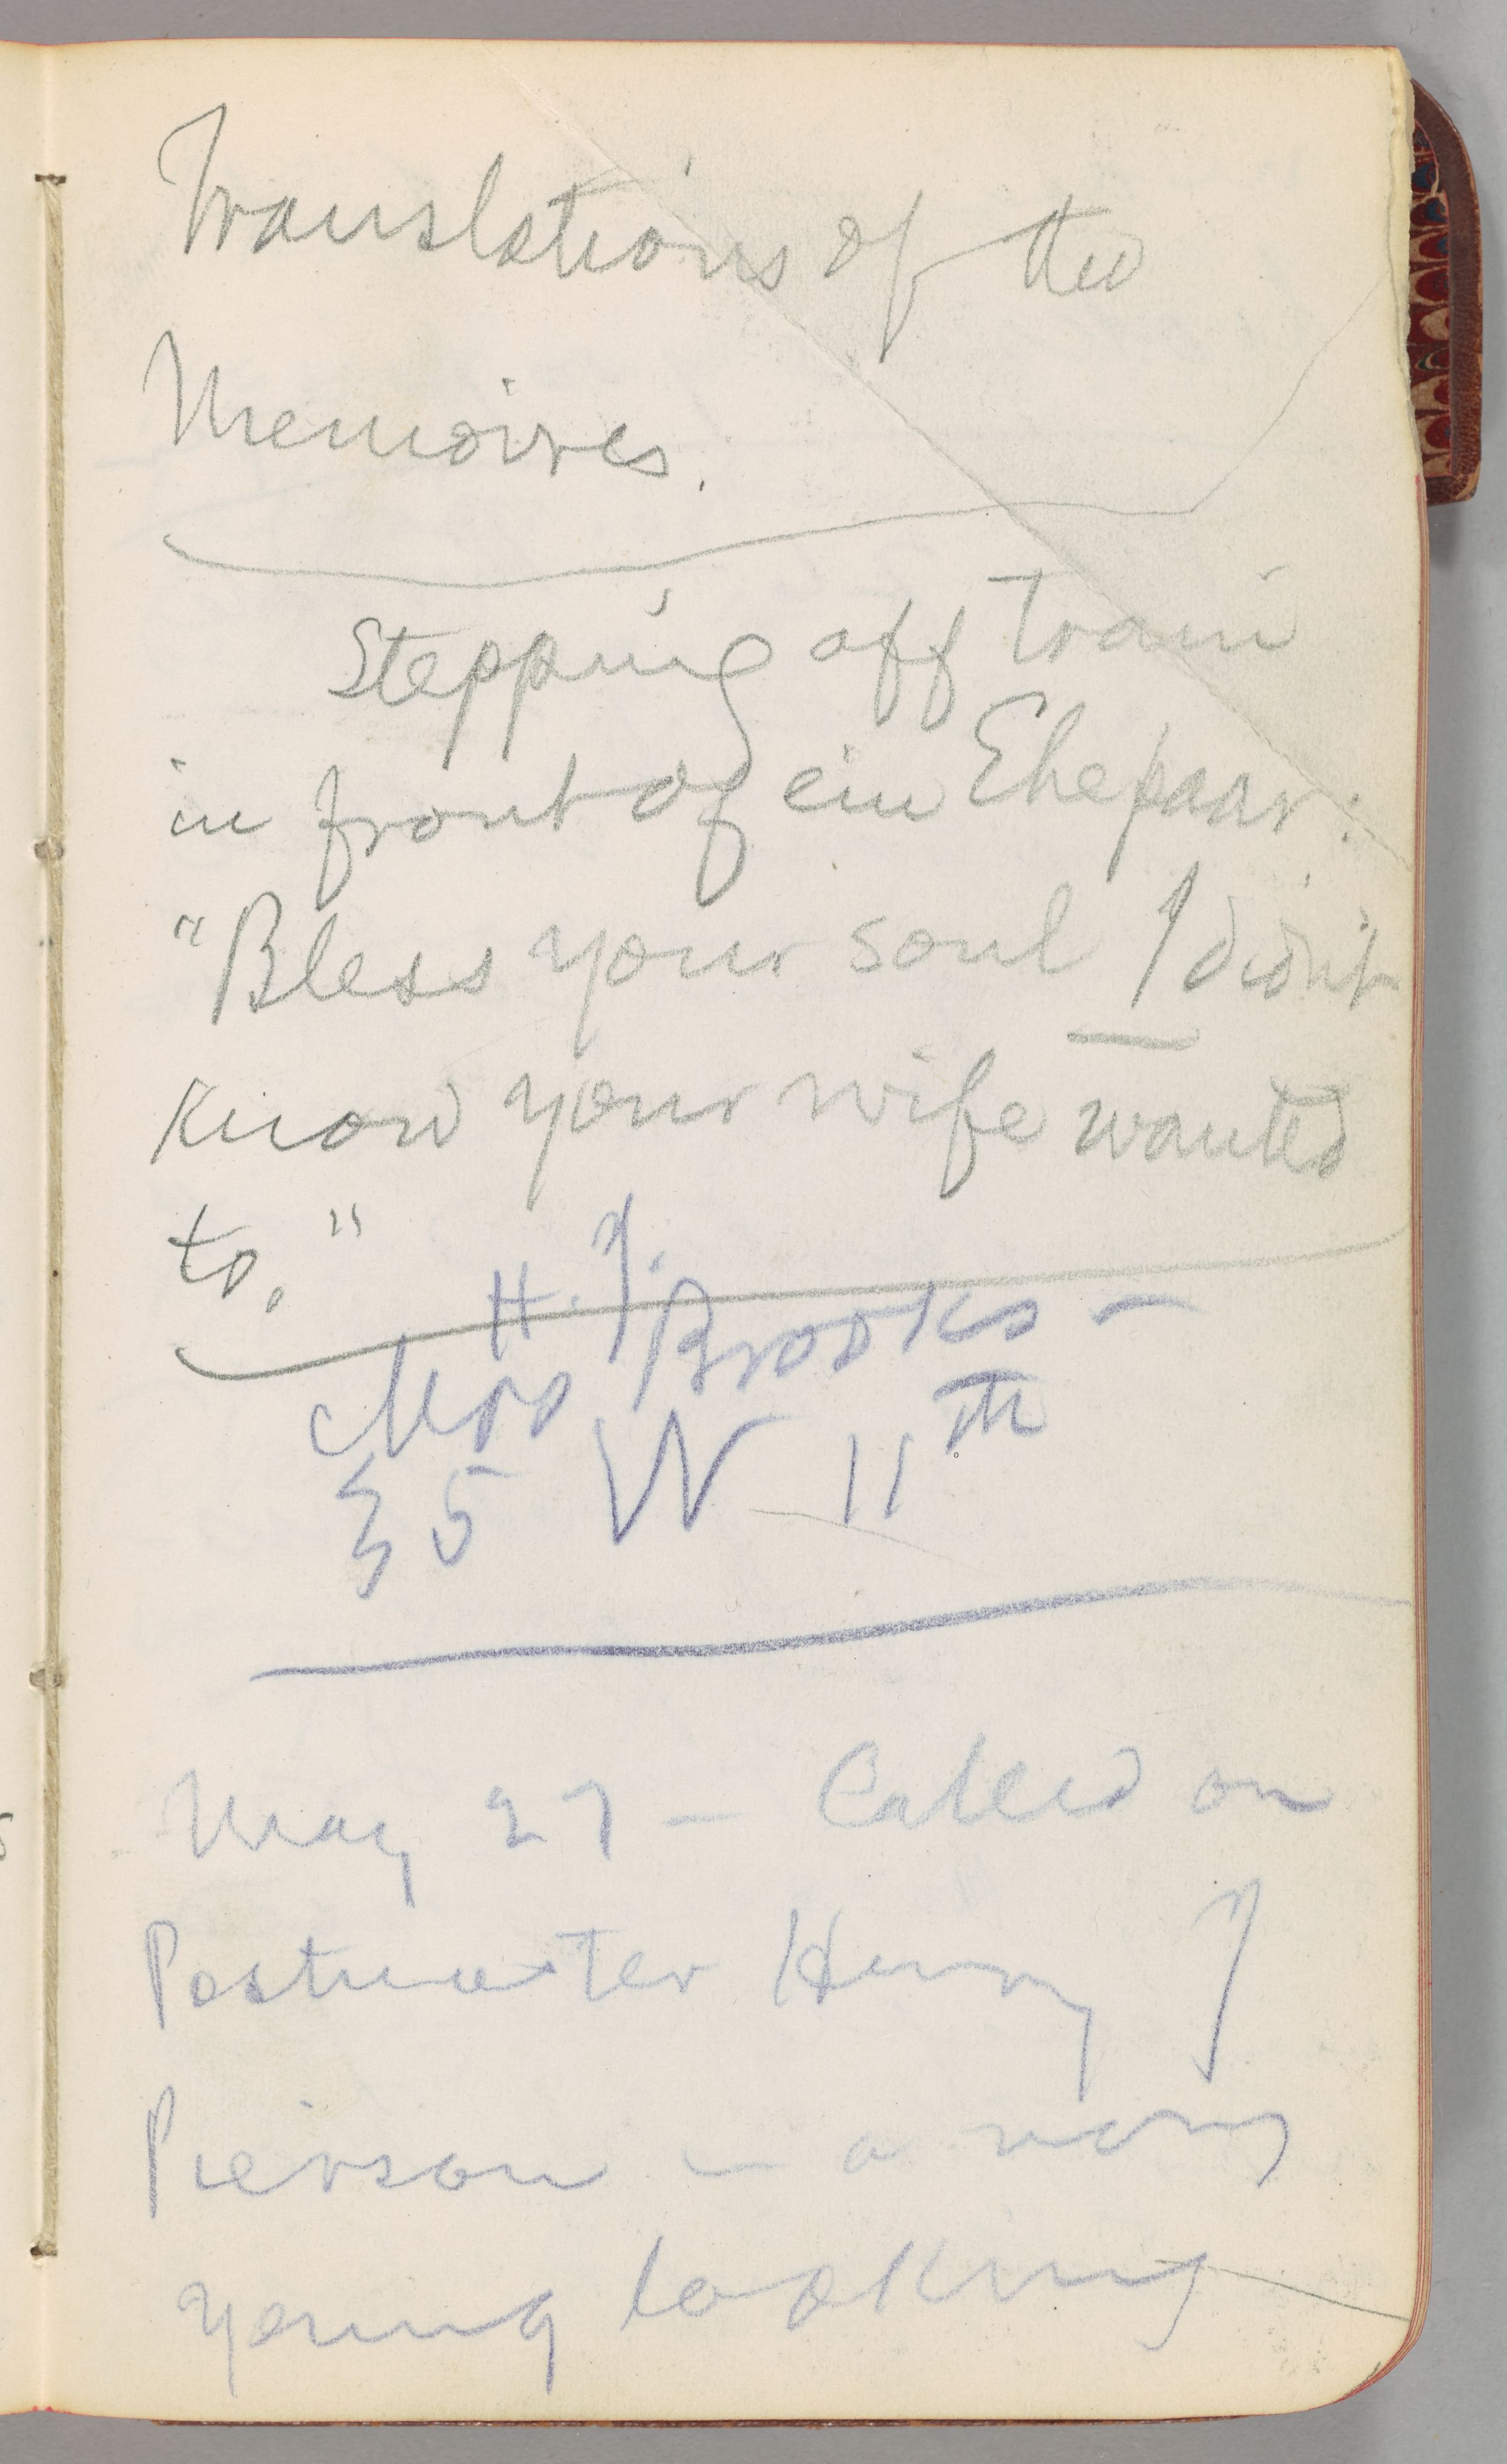 Translations of the
Memoires.
Stepping off train
in front of ein Ehepaar:
"Bless your soul I didn't
know your wife wanted
to."
H. J.
Mrs Brooks –
35 W 11th
May 27 – Called on
Postmaster Henry J
Pierson – a very
young looking